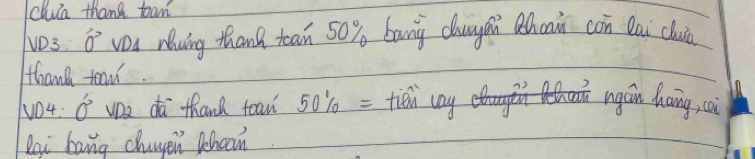 chưa thanh toán
VD3: Ở VD1 nhưng thanh toán 50% bằng chuyển khoản còn lại chưa
thanh toán.
VD4: Ở VD2 đã thanh toán 50% = tiền vay chuyển khoản ngân hàng, còn
lại bằng chuyển khoản